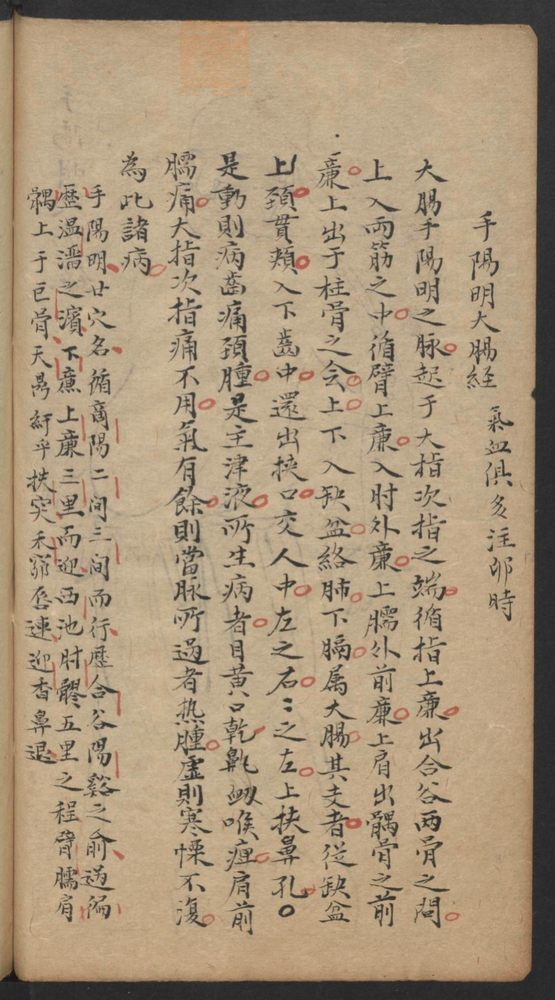 手陽明大腸経　氣血俱多注卯時
大腸手陽明之脉起于大指次指之端循指上廉出合谷两骨之間
上入两筋之中循臂上廉入肘外廉上臑外前廉上肩出髃骨之前
廉上出于柱骨之会上下入缺盆絡肺下膈属大腸其支者從缺盆
上頚貫頬入下齒中還出挾口交人中左之右〻之左上挾鼻孔
是動則病齒痛頚腫是主津液所生病者目黃口乾鼽衂喉痺肩前
臑痛大指次指痛不用氣有餘則當脉所過者热腫虛則寒慄不復
為此諸病
手陽明廿穴名循商陽二间三间而行歷合谷陽谿之俞過偏
歷温溜之濱下廉上廉三里而迎曲池肘髎五里之程臂臑肩
髃上于巨骨天鼎紆乎扶突禾窌唇連迎香鼻退